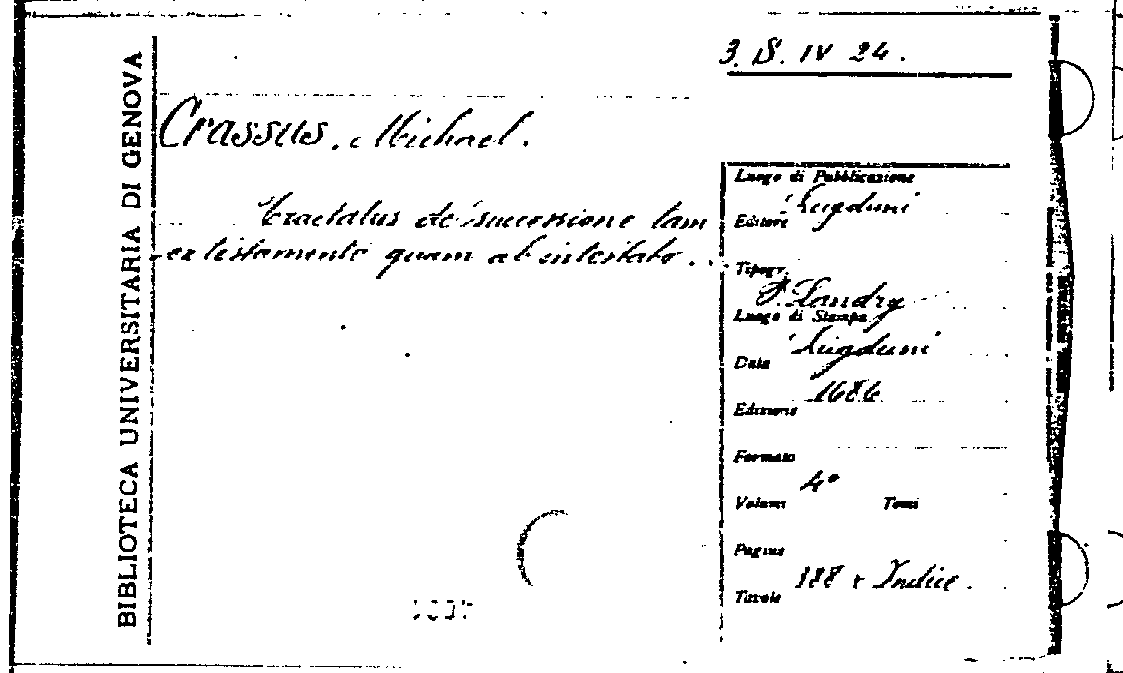 BIBLIOTECA UNIVERSITARIA DI GENOVA
3. S. IV 24.
Crassus, Michael.
Tractatus de successione tam
ex testamento quam ab intestato...
Luogo di Pubblicazione
Lugduni
Editore
Tipogr.
P. Landry
Luogo di Stampa
Lugduni
Data
1686
Edizione
Formato
4°
Volumi Tomi
Pagine
188 + Indice.
Tavole